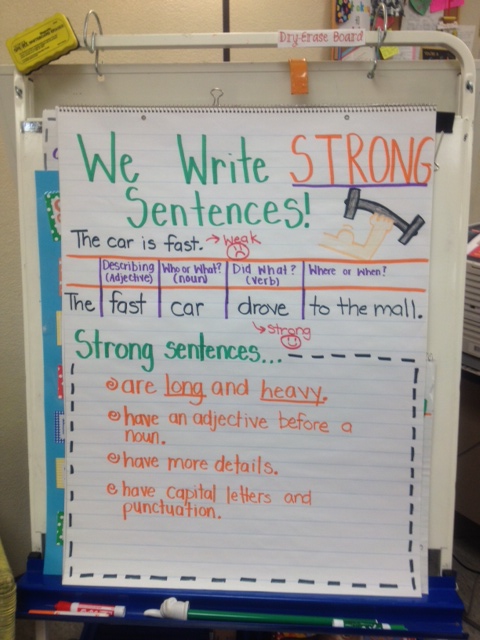 Dry-Erase Board
We Write STRONG
Sentences!
The car is fast. → weak
Describing (Adjective) Who or What? (noun) Did What? (verb) Where or When?
The fast car drove to the mall.
→ strong
Strong sentences...
are long and heavy.
have an adjective before a
noun.
have more details.
have capital letters and
punctuation.